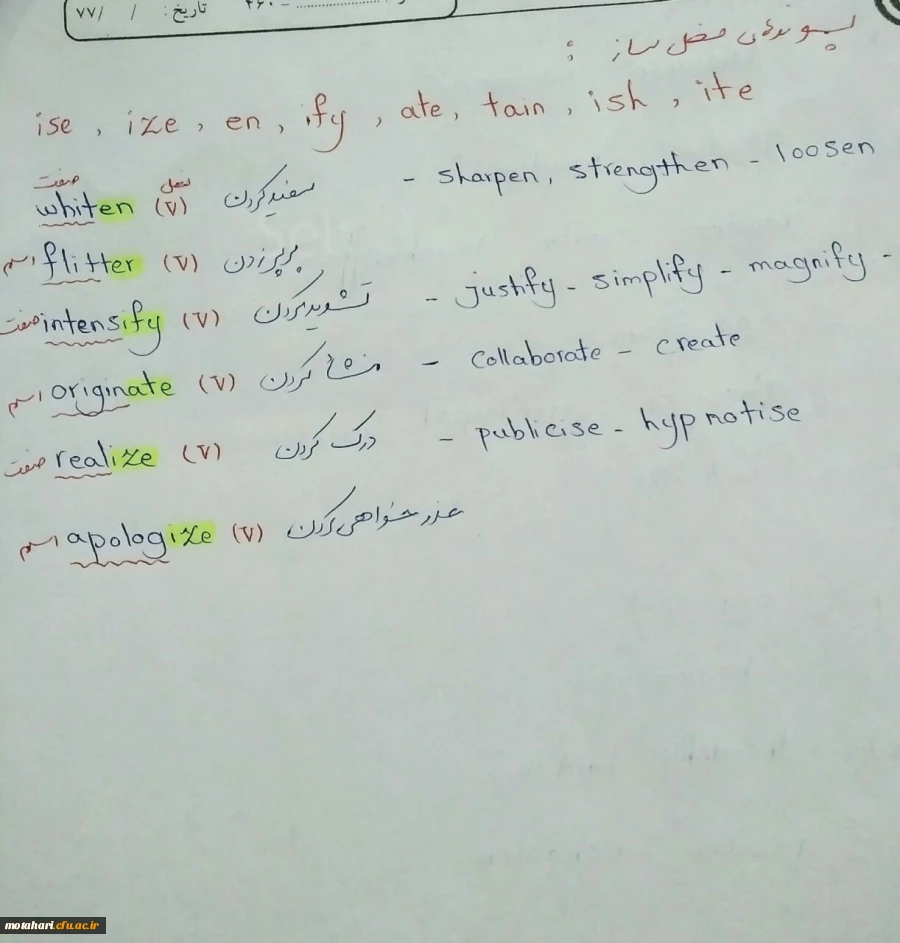 تاریخ: / /۷۷
پسوندهای فعل ساز :
ise , ize , en , ify , ate , tain , ish , ite
صفت فعل
whiten (v) سفید کردن - sharpen, strengthen - loosen
اسم flitter (v) پرپر زدن
صفت intensify (v) تشدید کردن - justify - simplify - magnify -
اسم originate (v) منشأ کردن - collaborate - create
صفت realize (v) درک کردن - publicise - hypnotise
اسم apologize (v) عذر خواهی کردن
motahari.cfu.ac.ir